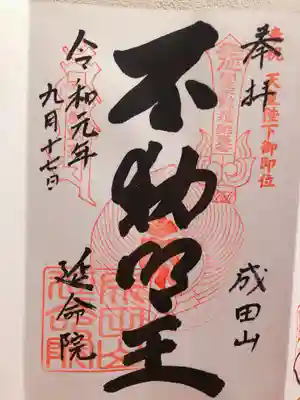 奉拝
天皇陛下御即位
成田山
不動明王
延命院
令和元年
九月十七日